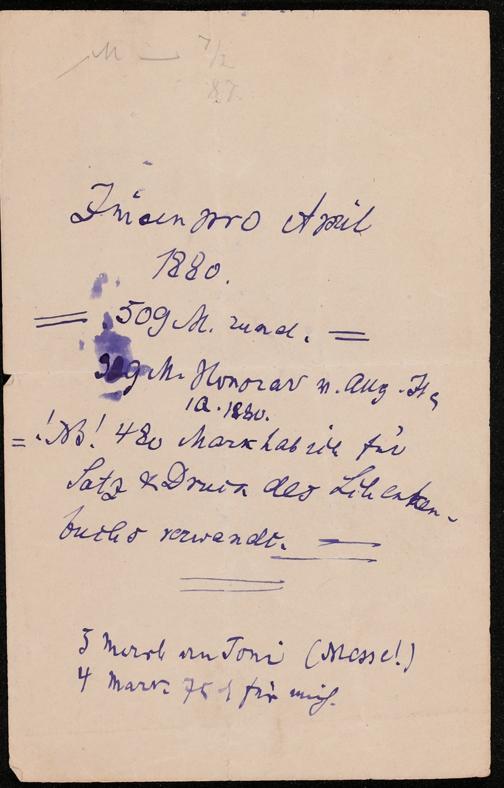 M — 7/2
87.
Zinsen pro April
1880.
= 509 M. rund. =
M. Honorar v. Aug.
1880.
= ! NB! 480 Mark hab ich für
Satz & Druck des Lilienken-
buchs verwandt. =
3 Mark an Toni (Messe!)
4 Mark 75 ₰ für mich.